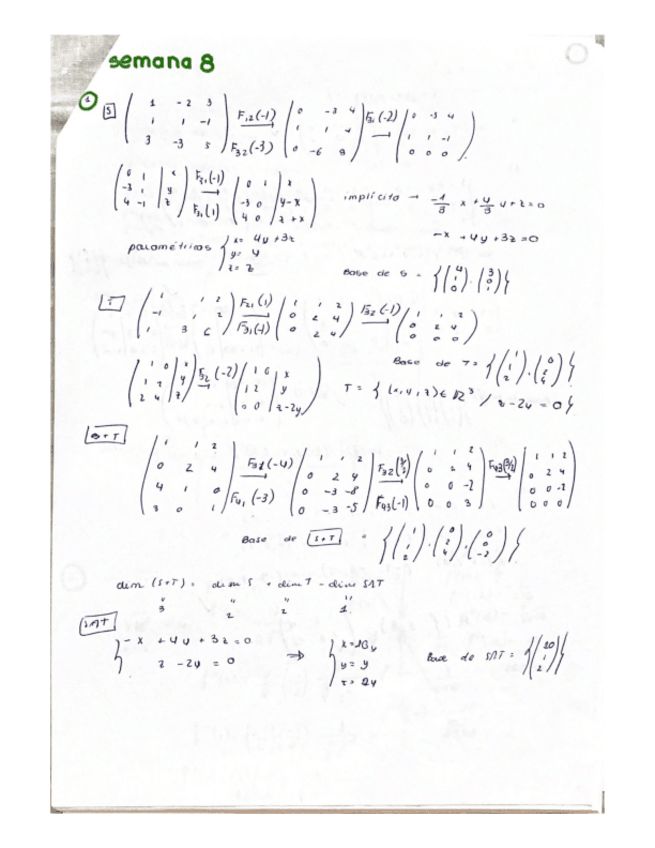 semana 8
1 S ( 1 -2 3 / 1 1 -1 / 3 -3 5 ) F12(-1) F32(-3) → ( 0 -3 4 / 1 1 4 / 0 -6 8 ) F31(-2) → ( 0 -3 4 / 1 1 -1 / 0 0 0 )
( 0 1 | x / -3 1 | y / 4 -1 | z ) F21(-1) F31(1) → ( 0 1 | x / -3 0 | y-x / 4 0 | z+x ) implícita → -1/3 x + 4/3 y + z = 0
-x + 4y + 3z = 0
paramétricas { x= 4y+3z
y= y
z= z
Base de S = {(4 1 0), (3 0 1)}
T ( 1 1 2 / -1 1 2 / 1 3 6 ) F21(1) F31(-1) → ( 1 1 2 / 0 2 4 / 0 2 4 ) F32(-1) → ( 1 1 2 / 0 2 4 / 0 0 0 )
Base de T = {(1 1 2), (0 2 4)}
( 1 0 | x / 1 2 | y / 2 4 | z ) F32(-2) → ( 1 0 | x / 1 2 | y / 0 0 | z-2y ) T = { (x,y,z) ∈ R³ / z-2y = 0 }
S+T
( 1 1 2 / 0 2 4 / 4 1 0 / 3 0 1 ) F31(-4) F41(-3) → ( 1 1 2 / 0 2 4 / 0 -3 -8 / 0 -3 -5 ) F32(3/2) F43(-1) → ( 1 1 2 / 0 2 4 / 0 0 -2 / 0 0 3 ) F43(3/2) → ( 1 1 2 / 0 2 4 / 0 0 -2 / 0 0 0 )
Base de S+T = {(1 1 2), (0 2 4), (0 0 -2)}
dim (S+T) = dim S + dim T - dim S∩T
" " " "
3 2 2 1
S∩T
{ -x + 4y + 3z = 0
z - 2y = 0
⇒ { x=10y
y= y
z= 2y
Base de S∩T = {(10 1 2)}